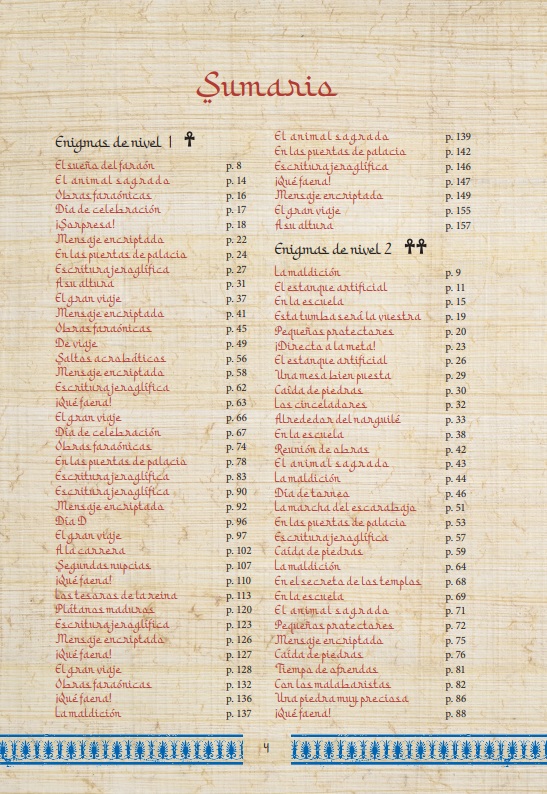 Sumario
Enigmas de nivel 1
El sueño del faraón p. 8
El animal sagrado p. 14
Obras faraónicas p. 16
Día de celebración p. 17
¡Sorpresa! p. 18
Mensaje encriptado p. 22
En las puertas de palacio p. 24
Escritura jeroglífica p. 27
A su altura p. 31
El gran viaje p. 37
Mensaje encriptado p. 41
Obras faraónicas p. 45
De viaje p. 49
Saltos acrobáticos p. 56
Mensaje encriptado p. 58
Escritura jeroglífica p. 62
¡Qué faena! p. 63
El gran viaje p. 66
Día de celebración p. 67
Obras faraónicas p. 74
En las puertas de palacio p. 78
Escritura jeroglífica p. 83
Escritura jeroglífica p. 90
Mensaje encriptado p. 92
Día D p. 96
El gran viaje p. 97
A la carrera p. 102
Segundas nupcias p. 107
¡Qué faena! p. 110
Los tesoros de la reina p. 113
Plátanos maduros p. 120
Escritura jeroglífica p. 123
Mensaje encriptado p. 126
¡Qué faena! p. 127
El gran viaje p. 128
Obras faraónicas p. 132
¡Qué faena! p. 136
La maldición p. 137
El animal sagrado p. 139
En las puertas de palacio p. 142
Escritura jeroglífica p. 146
¡Qué faena! p. 147
Mensaje encriptado p. 149
El gran viaje p. 155
A su altura p. 157
Enigmas de nivel 2
La maldición p. 9
El estanque artificial p. 11
En la escuela p. 15
Esta tumba será la vuestra p. 19
Pequeños protectores p. 20
¡Directo a la meta! p. 23
El estanque artificial p. 26
Una mesa bien puesta p. 29
Caída de piedras p. 30
Los cinceladores p. 32
Alrededor del narguilé p. 33
En la escuela p. 38
Reunión de obras p. 42
El animal sagrado p. 43
La maldición p. 44
Día de torneo p. 46
La marcha del escarabajo p. 51
En las puertas de palacio p. 53
Escritura jeroglífica p. 57
Caída de piedras p. 59
La maldición p. 64
En el secreto de los templos p. 68
En la escuela p. 69
El animal sagrado p. 71
Pequeños protectores p. 72
Mensaje encriptado p. 75
Caída de piedras p. 76
Tiempo de ofrendas p. 81
Con los malabaristas p. 82
Una piedra muy preciosa p. 86
¡Qué faena! p. 88
4